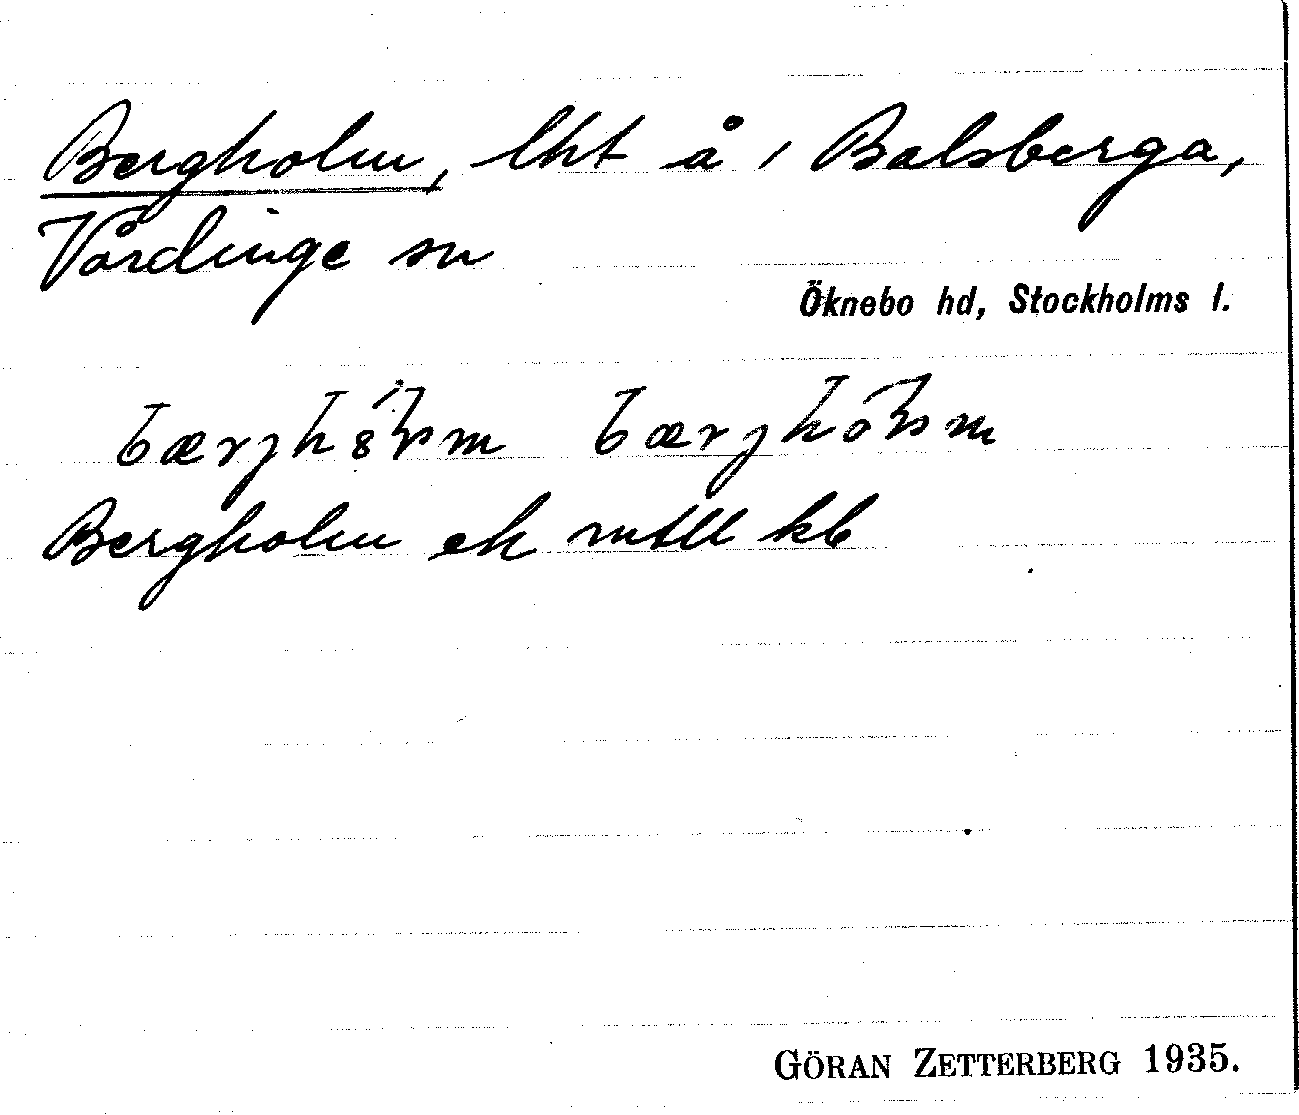 Bergholm, lht å 1 Balsberga,
Vårdinge sn
Öknebo hd, Stockholms l.
Bergholm ek mtll kb
GÖRAN ZETTERBERG 1935.